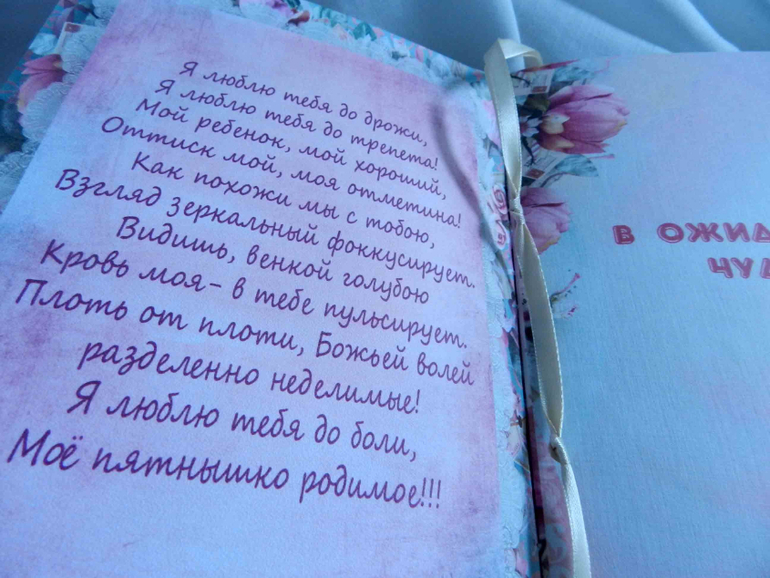 Я люблю тебя до дрожи,
Я люблю тебя до трепета!
Мой ребенок, мой хороший,
Оттиск мой, моя отметина!
Как похожи мы с тобою,
Взгляд зеркальный фоккусирует.
Видишь, венкой голубою
Кровь моя - в тебе пульсирует.
Плоть от плоти, Божьей волей
разделенно неделимые!
Я люблю тебя до боли,
Моё пятнышко родимое!!!
В ОЖИД
ЧУД